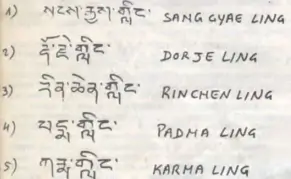 1) སངས་རྒྱས་གླིང་ SANG GYAE LING
2) རྡོ་རྗེ་གླིང་ DORJE LING
3) རིན་ཆེན་གླིང་ RINCHEN LING
4) པདྨ་གླིང་ PADMA LING
5) ཀརྨ་གླིང་ KARMA LING